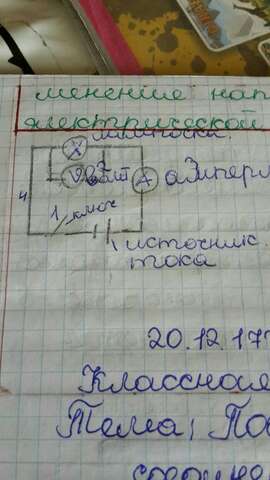 менение нап
электрической
лампочка
V вольт
A аЭмперм
ч
ключ
источник
тока
20.12.17г
Классная
Тема: По
соедине